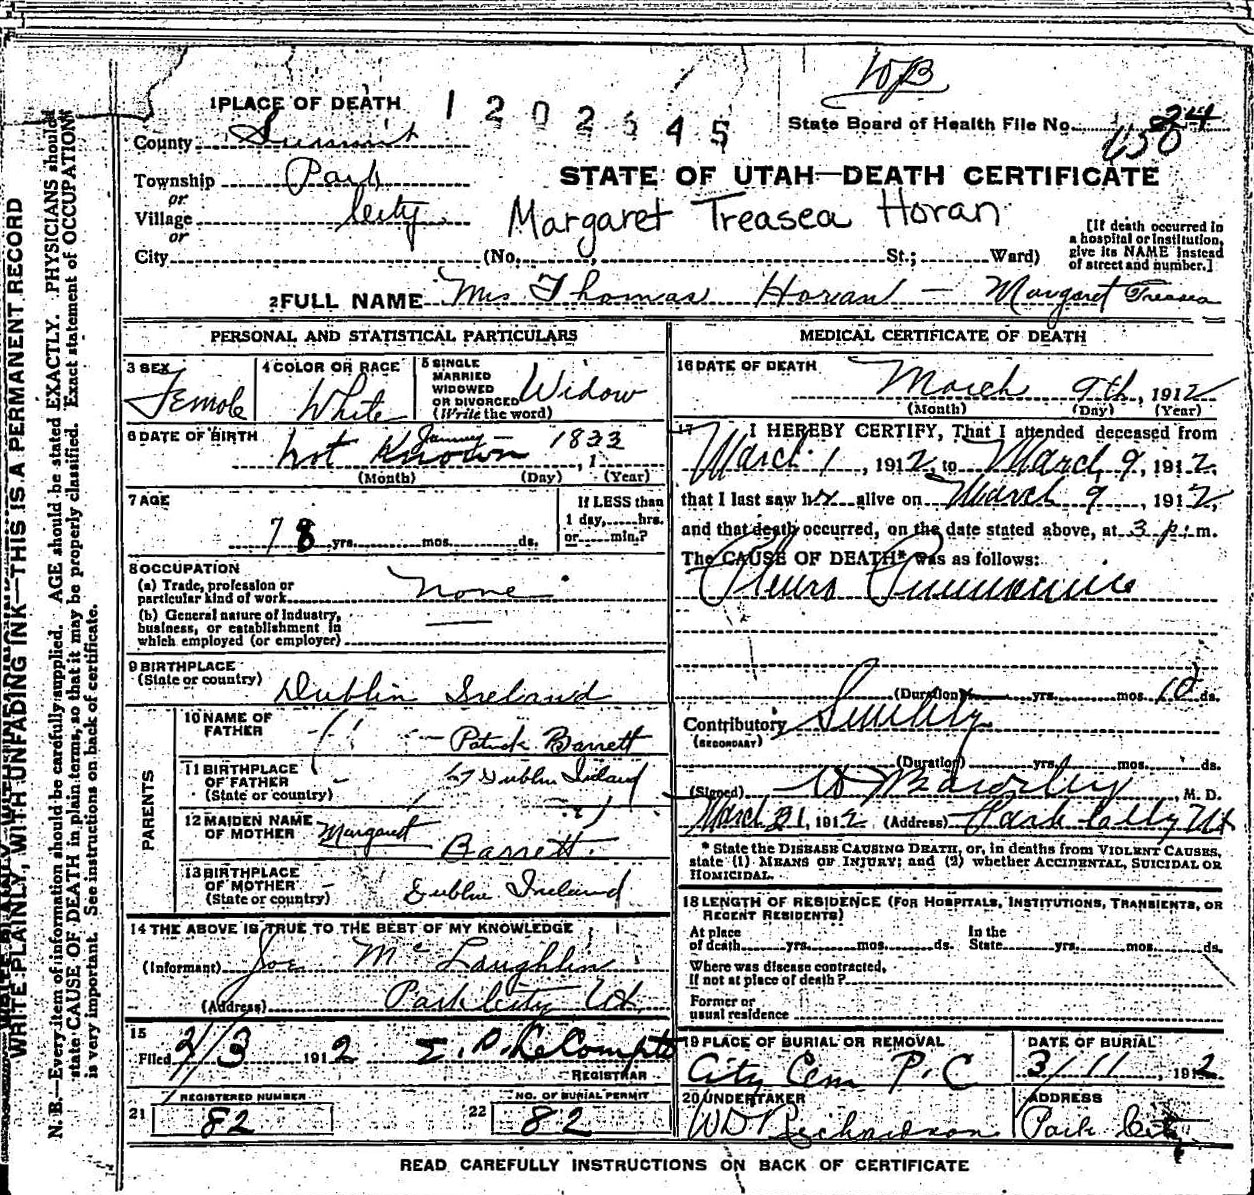 WB
1 PLACE OF DEATH 1202645
State Board of Health File No. 24
650
County Summit
STATE OF UTAH—DEATH CERTIFICATE
Township Park
or
Village City
or
Margaret Treasea Horan
City (No. St.; Ward)
[If death occurred in
a hospital or institution,
give its NAME instead
of street and number.]
2 FULL NAME Mrs Thomas Horan — Margaret Treasea
PERSONAL AND STATISTICAL PARTICULARS
3 SEX Female
4 COLOR OR RACE White
5 SINGLE
MARRIED
WIDOWED
OR DIVORCED
(Write the word)
Widow
6 DATE OF BIRTH
not Known January — 1833, 1
(Month) (Day) (Year)
7 AGE
78 yrs. mos. ds.
If LESS than
1 day, hrs.
or min.?
8 OCCUPATION
(a) Trade, profession or
particular kind of work None
(b) General nature of industry,
business, or establishment in
which employed (or employer)
9 BIRTHPLACE
(State or country) Dublin Ireland
PARENTS
10 NAME OF
FATHER Patrick Barrett
11 BIRTHPLACE
OF FATHER
(State or country) Dublin Ireland
12 MAIDEN NAME
OF MOTHER Margaret Barrett
13 BIRTHPLACE
OF MOTHER
(State or country) Dublin Ireland
14 THE ABOVE IS TRUE TO THE BEST OF MY KNOWLEDGE
(Informant) Joe McLaughlin
(Address) Park City Ut.
15
Filed 2/3 1912 E. P. LeCompte
REGISTRAR
REGISTERED NUMBER
21 82
NO. OF BURIAL PERMIT
22 82
MEDICAL CERTIFICATE OF DEATH
16 DATE OF DEATH
March 9th, 1912
(Month) (Day) (Year)
17 I HEREBY CERTIFY, That I attended deceased from
March 1, 1912, to March 9, 1912,
that I last saw her alive on March 9, 1912,
and that death occurred, on the date stated above, at 3 p.m.
The CAUSE OF DEATH* was as follows:
Pleuro Pneumonia
(Duration) yrs. mos. 10 ds.
Contributory Senility
(SECONDARY)
(Duration) yrs. mos. ds.
(Signed) M. D.
March 21, 1912 (Address) Park City Ut
* State the DISEASE CAUSING DEATH, or, in deaths from VIOLENT CAUSES,
state (1) MEANS OF INJURY; and (2) whether ACCIDENTAL, SUICIDAL or
HOMICIDAL.
18 LENGTH OF RESIDENCE (FOR HOSPITALS, INSTITUTIONS, TRANSIENTS, OR
RECENT RESIDENTS)
At place In the
of death yrs. mos. ds. State yrs. mos. ds.
Where was disease contracted,
If not at place of death?
Former or
usual residence
19 PLACE OF BURIAL OR REMOVAL
City Cem P.C
DATE OF BURIAL
3/11, 1912
20 UNDERTAKER
WD Richardson
ADDRESS
Park City
READ CAREFULLY INSTRUCTIONS ON BACK OF CERTIFICATE
WRITE PLAINLY, WITH UNFADING INK—THIS IS A PERMANENT RECORD
N. B.—Every item of information should be carefully supplied. AGE should be stated EXACTLY. PHYSICIANS should
state CAUSE OF DEATH in plain terms, so that it may be properly classified. Exact statement of OCCUPATION
is very important. See instructions on back of certificate.